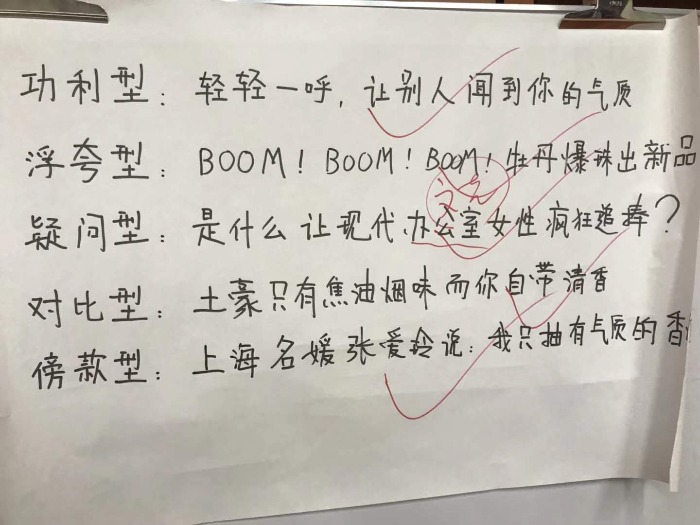 功利型：轻轻一呼，让别人闻到你的气质
浮夸型：BOOM！BOOM！BOOM！牡丹爆珠出新品
疑问型：是什么让现代办公室女性疯狂追捧？
对比型：土豪只有焦油烟味而你自带清香
傍款型：上海名媛张爱玲说：我只抽有气质的香